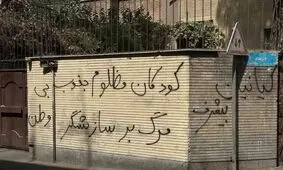 کودکان مظلوم جنوب بی
وطن
مرگ بر سازشگر
بیشرف